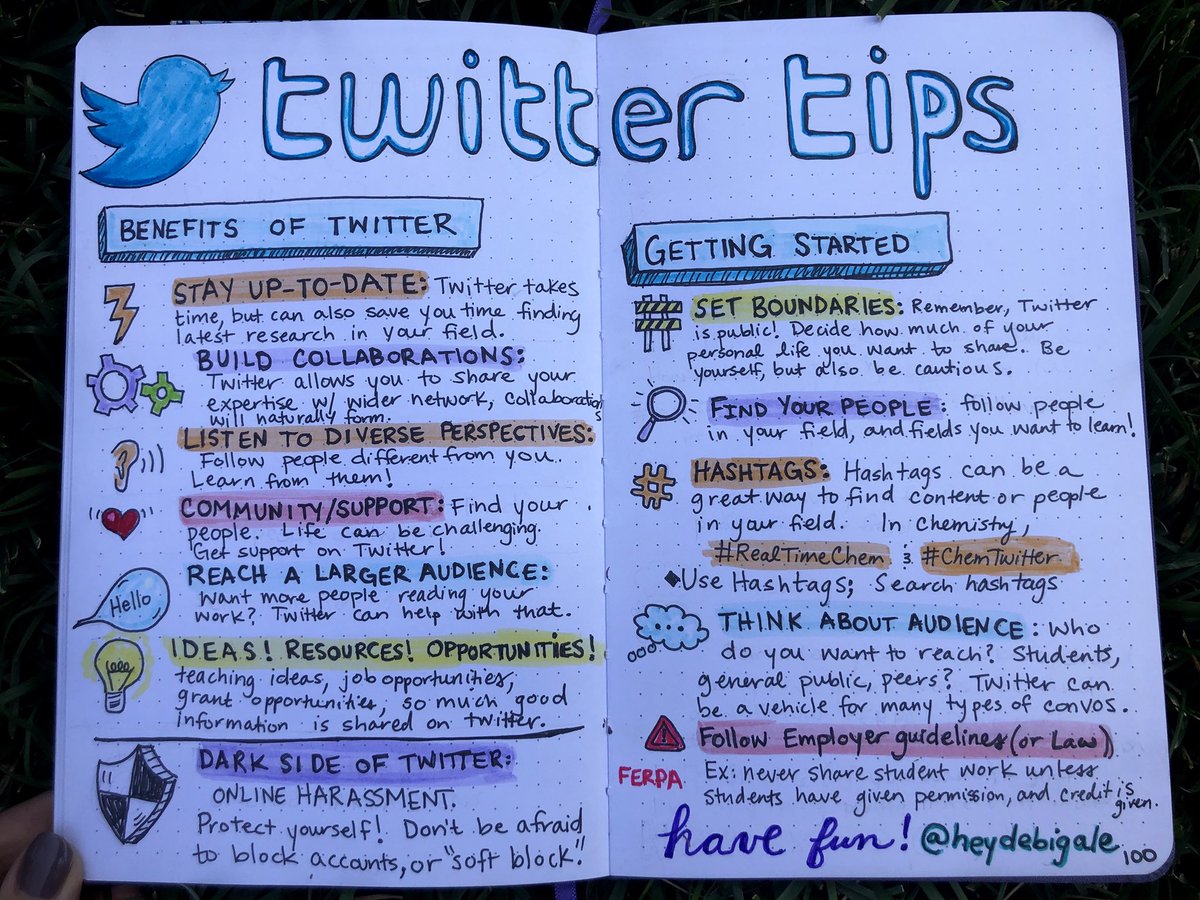 twitter tips
BENEFITS OF TWITTER
STAY UP-TO-DATE: Twitter takes
time, but can also save you time finding
latest research in your field.
BUILD COLLABORATIONS:
Twitter allows you to share your
expertise w/ wider network, collaborations
will naturally form.
LISTEN TO DIVERSE PERSPECTIVES:
Follow people different from you.
Learn from them!
COMMUNITY/SUPPORT: Find your
people. Life can be challenging.
Get support on Twitter!
Hello
REACH A LARGER AUDIENCE:
Want more people reading your
work? Twitter can help with that.
IDEAS! RESOURCES! OPPORTUNITIES!
teaching ideas, job opportunities,
grant opportunities, so much good
information is shared on twitter.
DARK SIDE OF TWITTER:
ONLINE HARASSMENT.
Protect yourself! Don't be afraid
to block accounts, or "soft block."
GETTING STARTED
SET BOUNDARIES: Remember, Twitter
is public! Decide how much of your
personal life you want to share. Be
yourself, but also be cautious.
FIND YOUR PEOPLE: follow people
in your field, and fields you want to learn!
HASHTAGS: Hashtags can be a
great way to find content or people
in your field. In Chemistry,
#RealTimeChem & #ChemTwitter
Use Hashtags; Search hashtags
THINK ABOUT AUDIENCE: Who
do you want to reach? Students,
general public, peers? Twitter can
be a vehicle for many types of convos.
Follow Employer guidelines (or Law)
FERPA
Ex: never share student work unless
students have given permission, and credit is
given.
have fun! @heydebigale
100